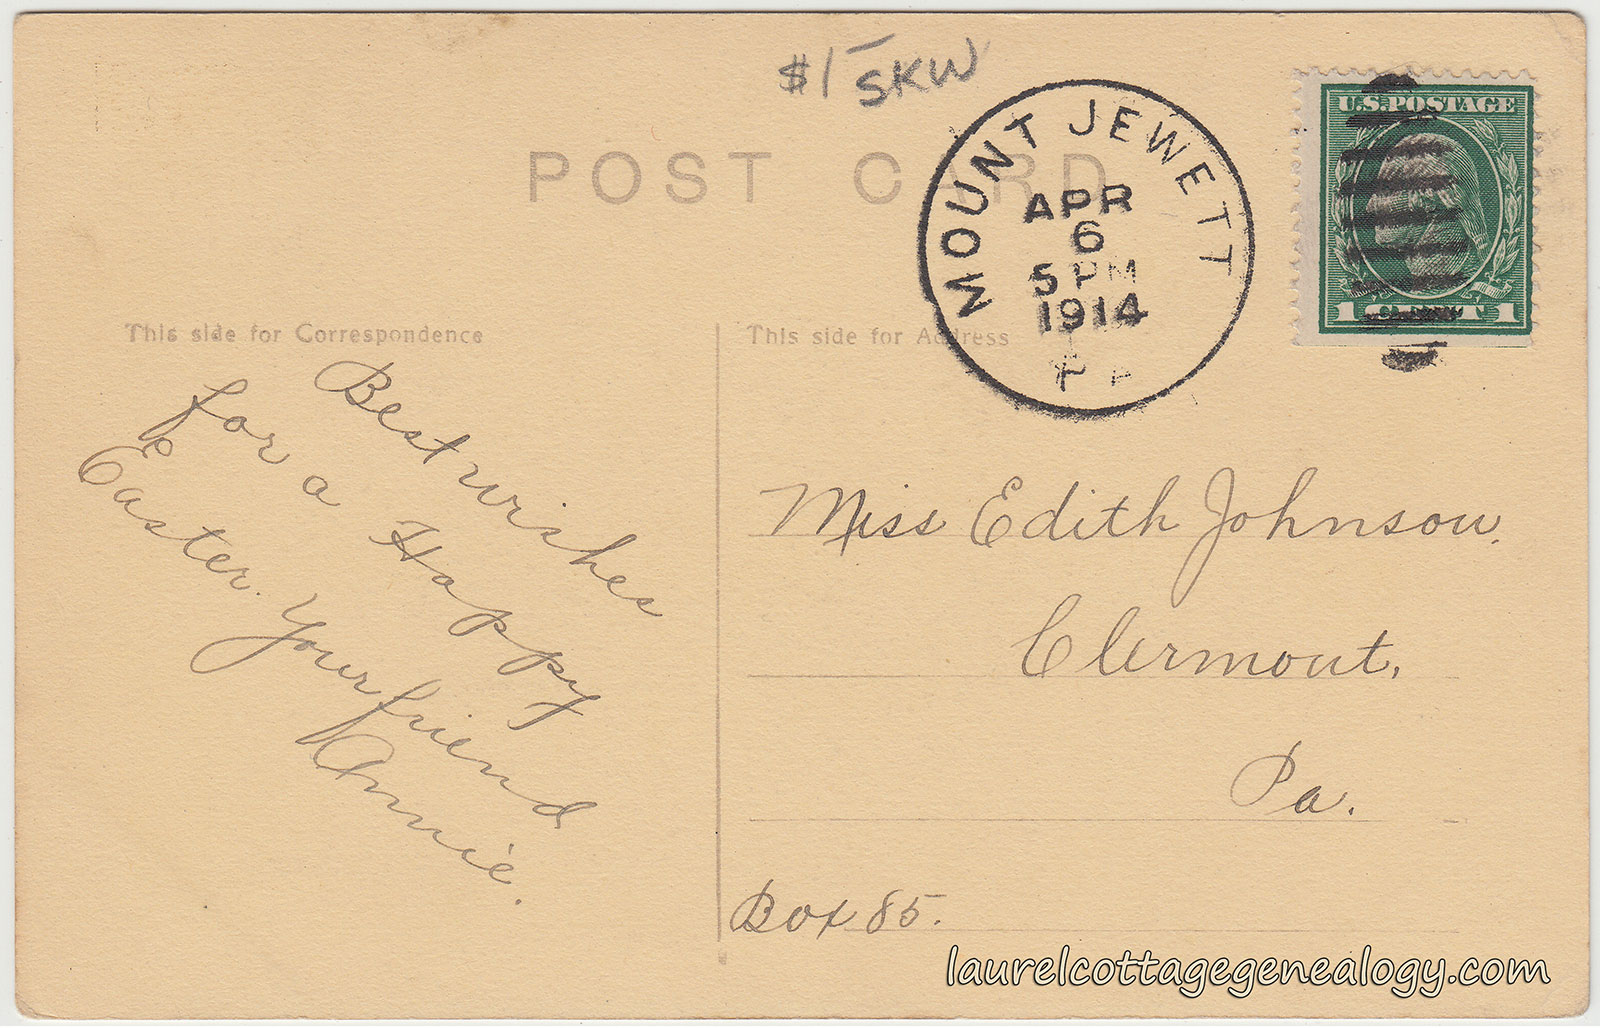 $1 — SKW
POST CARD
MOUNT JEWETT
APR
6
5 PM
1914
U.S. POSTAGE
1 CENT 1
This side for Correspondence
This side for Address
Best wishes
for a Happy
Easter. Your friend
Annie.
Miss Edith Johnson,
Clermont,
Pa.
Box 85.
laurelcottagegenealogy.com